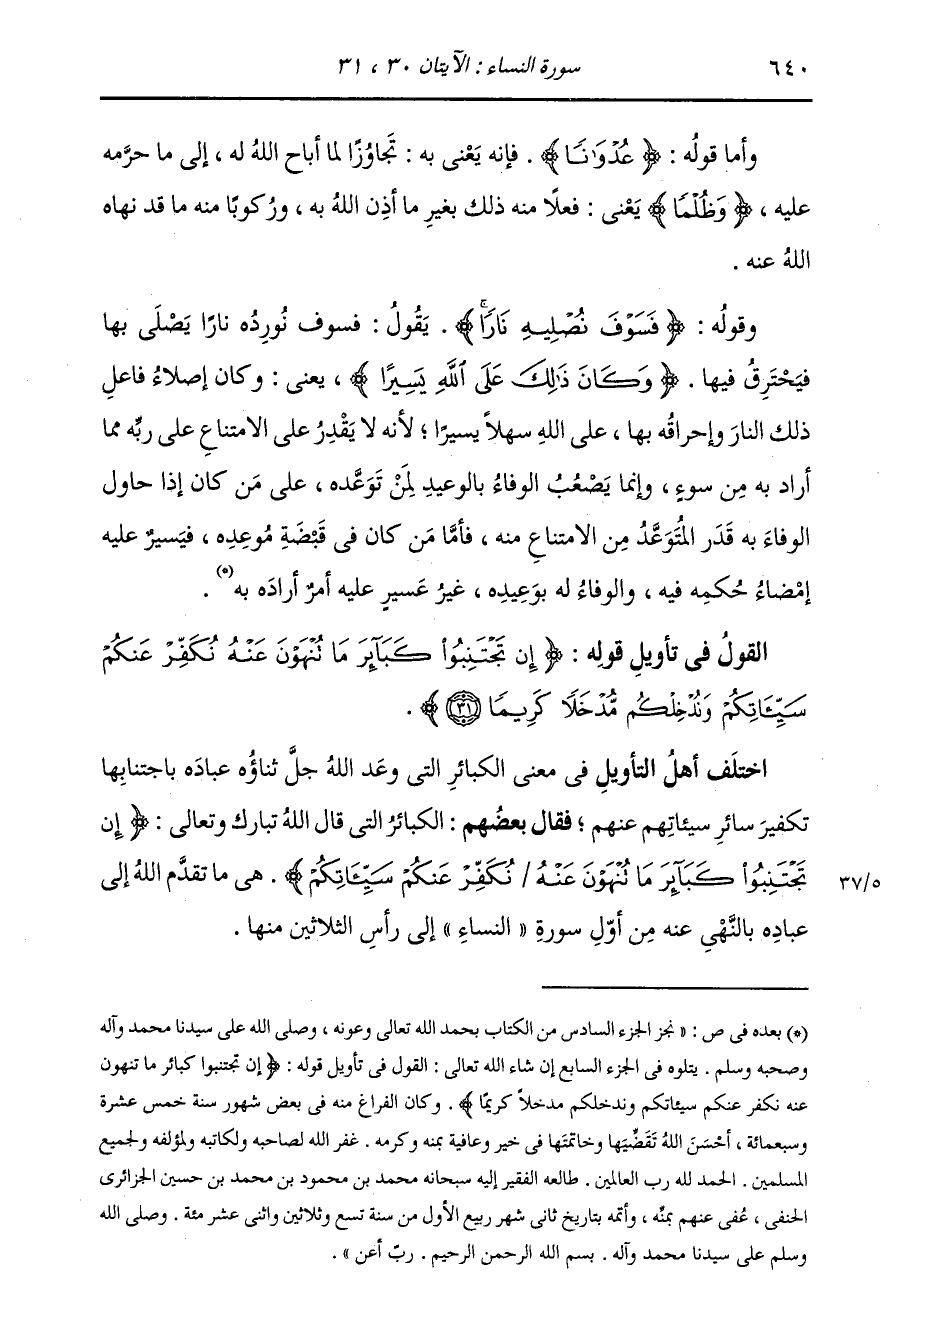 ٦٤٠ سورة النساء : الآيتان ٣٠ ، ٣١
وأما قولُه : ﴿ عُدْوَٰنًا ﴾ . فإنه يَعْنى به : تَجاوُزًا لما أباح اللهُ له ، إلى ما حرَّمه
عليه ، ﴿ وَظُلْمًا ﴾ يَعْنى : فعلًا منه ذلك بغيرِ ما أذِن اللهُ به ، ورُكوبًا منه ما قد نهاه
اللهُ عنه .
وقولُه : ﴿ فَسَوْفَ نُصْلِيهِ نَارًاۚ ﴾ . يَقُولُ : فسوف نُورِدُه نارًا يَصْلَى بها
فيَحْتَرِقُ فيها . ﴿ وَكَانَ ذَٰلِكَ عَلَى ٱللَّهِ يَسِيرًا ﴾ ، يعنى : وكان إصلاءُ فاعلِ
ذلك النارَ وإحراقُه بها ، على اللهِ سهلاً يسيرًا ؛ لأنه لا يَقْدِرُ على الامتناعِ على ربِّه مما
أراد به مِن سوءٍ ، وإنما يَصْعُبُ الوفاءُ بالوعيدِ لمَنْ تَوَعَّده ، على مَن كان إذا حاول
الوفاءَ به قَدَر المُتَوَعَّدُ مِن الامتناعِ منه ، فأمَّا مَن كان فى قَبْضَةِ مُوعِدِه ، فيَسيرٌ عليه
إمْضاءُ حُكمِه فيه ، والوفاءُ له بوَعِيدِه ، غيرُ عَسيرٍ عليه أمرٌ أرادَه به(*) .
القولُ فى تأويلِ قولِه : ﴿ إِن تَجْتَنِبُوا۟ كَبَآئِرَ مَا تُنْهَوْنَ عَنْهُ نُكَفِّرْ عَنكُمْ
سَيِّـَٔاتِكُمْ وَنُدْخِلْكُم مُّدْخَلًا كَرِيمًا (٣١) ﴾ .
اختلَف أهلُ التأويلِ فى معنى الكبائرِ التى وعَد اللهُ جلَّ ثناؤُه عبادَه باجتنابِها
تكفيرَ سائرِ سيئاتِهم عنهم ؛ فقال بعضُهم : الكبائرُ التى قال اللهُ تبارك وتعالى : ﴿ إِن
تَجْتَنِبُوا۟ كَبَآئِرَ مَا تُنْهَوْنَ عَنْهُ / نُكَفِّرْ عَنكُمْ سَيِّـَٔاتِكُمْ ﴾ . هى ما تقدَّم اللهُ إلى ٣٧/٥
عبادِه بالنَّهْيِ عنه مِن أوّلِ سورةِ « النساءِ » إلى رأسِ الثلاثين منها .
(*) بعده فى ص : « نجز الجزء السادس من الكتاب بحمد الله تعالى وعونه ، وصلى الله على سيدنا محمد وآله
وصحبه وسلم . يتلوه فى الجزء السابع إن شاء الله تعالى : القول فى تأويل قوله : ﴿ إن تجتنبوا كبائر ما تنهون
عنه نكفر عنكم سيئاتكم وندخلكم مدخلاً كريمًا ﴾ . وكان الفراغ منه فى بعض شهور سنة خمس عشرة
وسبعمائة ، أحْسَنَ اللهُ تَقَضِّيَها وخاتمتَها فى خير وعافية بمنه وكرمه . غفر الله لصاحبه ولكاتبه ولمؤلفه ولجميع
المسلمين . الحمد لله رب العالمين . طالعه الفقير إليه سبحانه محمد بن محمود بن محمد بن حسين الجزائرى
الحنفى ، عُفى عنهم بمنِّه ، وأتمه بتاريخ ثانى شهر ربيع الأول من سنة تسع وثلاثين واثنى عشر مئة . وصلى الله
وسلم على سيدنا محمد وآله . بسم الله الرحمن الرحيم . ربّ أعن » .